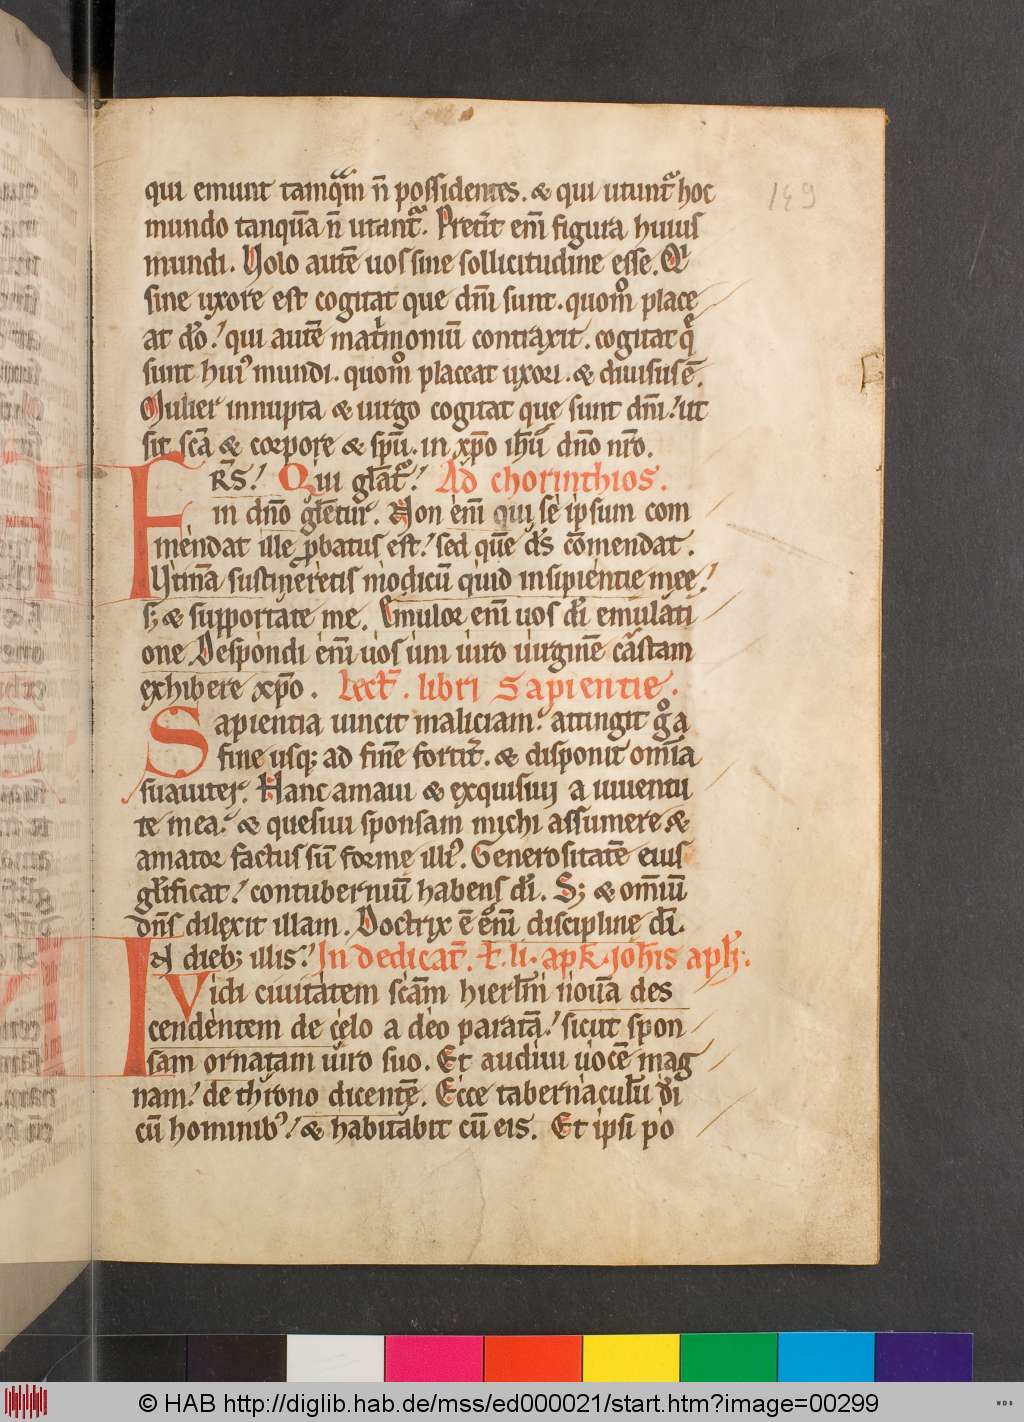 qui emunt tamqᷓm n̄ possidentes. & qui utuntᷓ hoc
mundo tanquā n̄ utantᷓ. Preteͥt eni̅ figura huius
mundi. Uolo aute̅ uos sine sollicitudine esse. Qͥ
sine uxore est cogitat que dn̅i sunt. quomͦ place
at do̅. qui aute̅ matͥmoniu̅ contraxit. cogitat q̄
sunt huiꝰ mundi. quomͦ placeat uxori. & diuisus ē.
Mulier innupta & uirgo cogitat que sunt dn̅i. ut
sit sc̅a & corpore & spu̅. in xp̅o ih̅u dn̅o nr̅o.
FRS. Qui gl̅atᷓ. Ad chorinthios.
in dn̅o gl̅etur. Non eni̅ qui se ipsum com
mendat ille ꝓbatus est. sed que̅ ds̅ co̅mendat.
Utina̅ sustineretis modicu̅ quid insipientie mee.
sꝫ & supportate me. Emulor eni̅ uos di̅ emulati
one. Despondi eni̅ uos uni uiro uirgine̅ castam
exhibere xp̅o. Lect̅. libri Sapientie.
Sapientia uincit maliciam. attingit gͦ a
fine usqꝫ ad fine̅ fortit̅. & disponit om̅ia
suauiter. Hanc amaui & exquisiui a iuuentu
te mea. & quesiui sponsam michi assumere. &
amator factus su̅ forme illiꝰ. Generositate̅ eius
gl̅ificat. contuberniu̅ habens di̅. Sꝫ & om̅iu̅
dn̅s dilexit illam. Doctrix ē eni̅ discipline di̅.
IN diebꝫ illis. In dedicat̅. t̅. li. apk. ioh̅is apl̅i.
Vidi ciuitatem sc̅am hierl̅m noua̅ des
cendentem de celo a deo parata̅. sicut spon
sam ornatam uiro suo. Et audiui uoce̅ mag
nam. de throno dicente̅. Ecce tabernaculu̅ di̅
cu̅ hominibꝰ. & habitabit cu̅ eis. Et ipsi po
© HAB http://diglib.hab.de/mss/ed000021/start.htm?image=00299